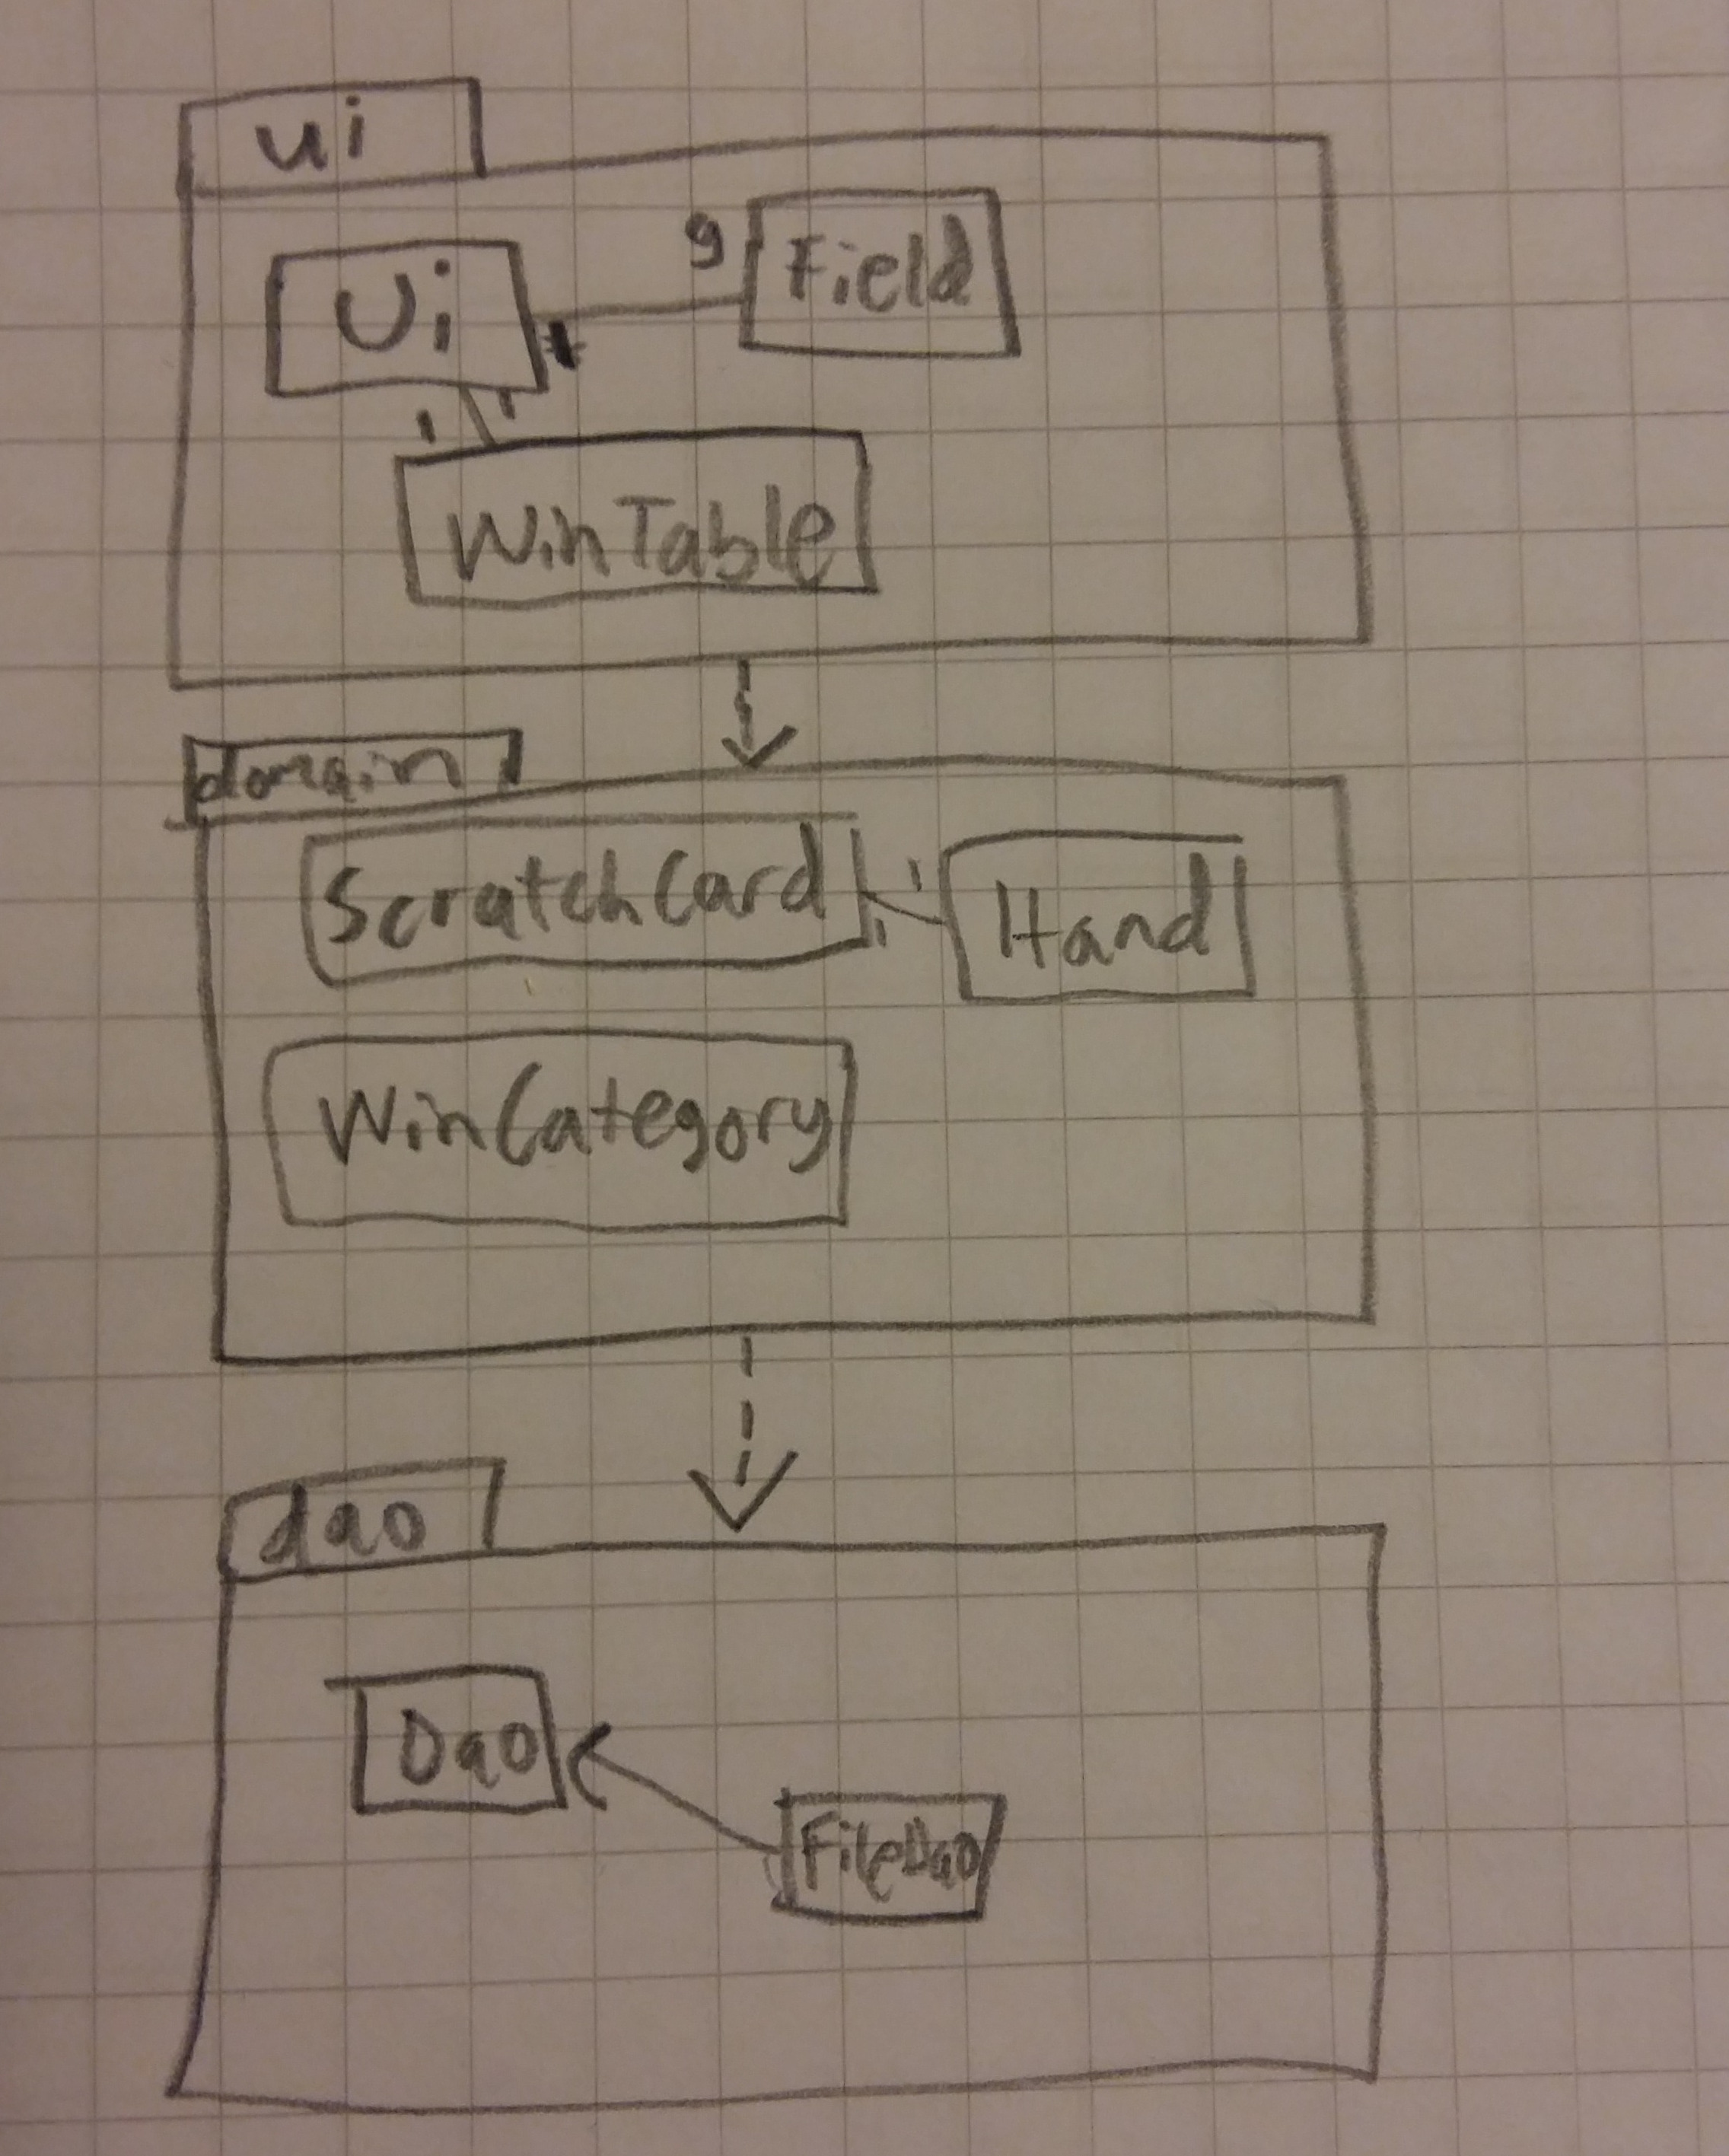 ui
Ui
9
Field
1
1
1
WinTable
domain
ScratchCard
1
1
Hand
WinCategory
dao
Dao
FileDao